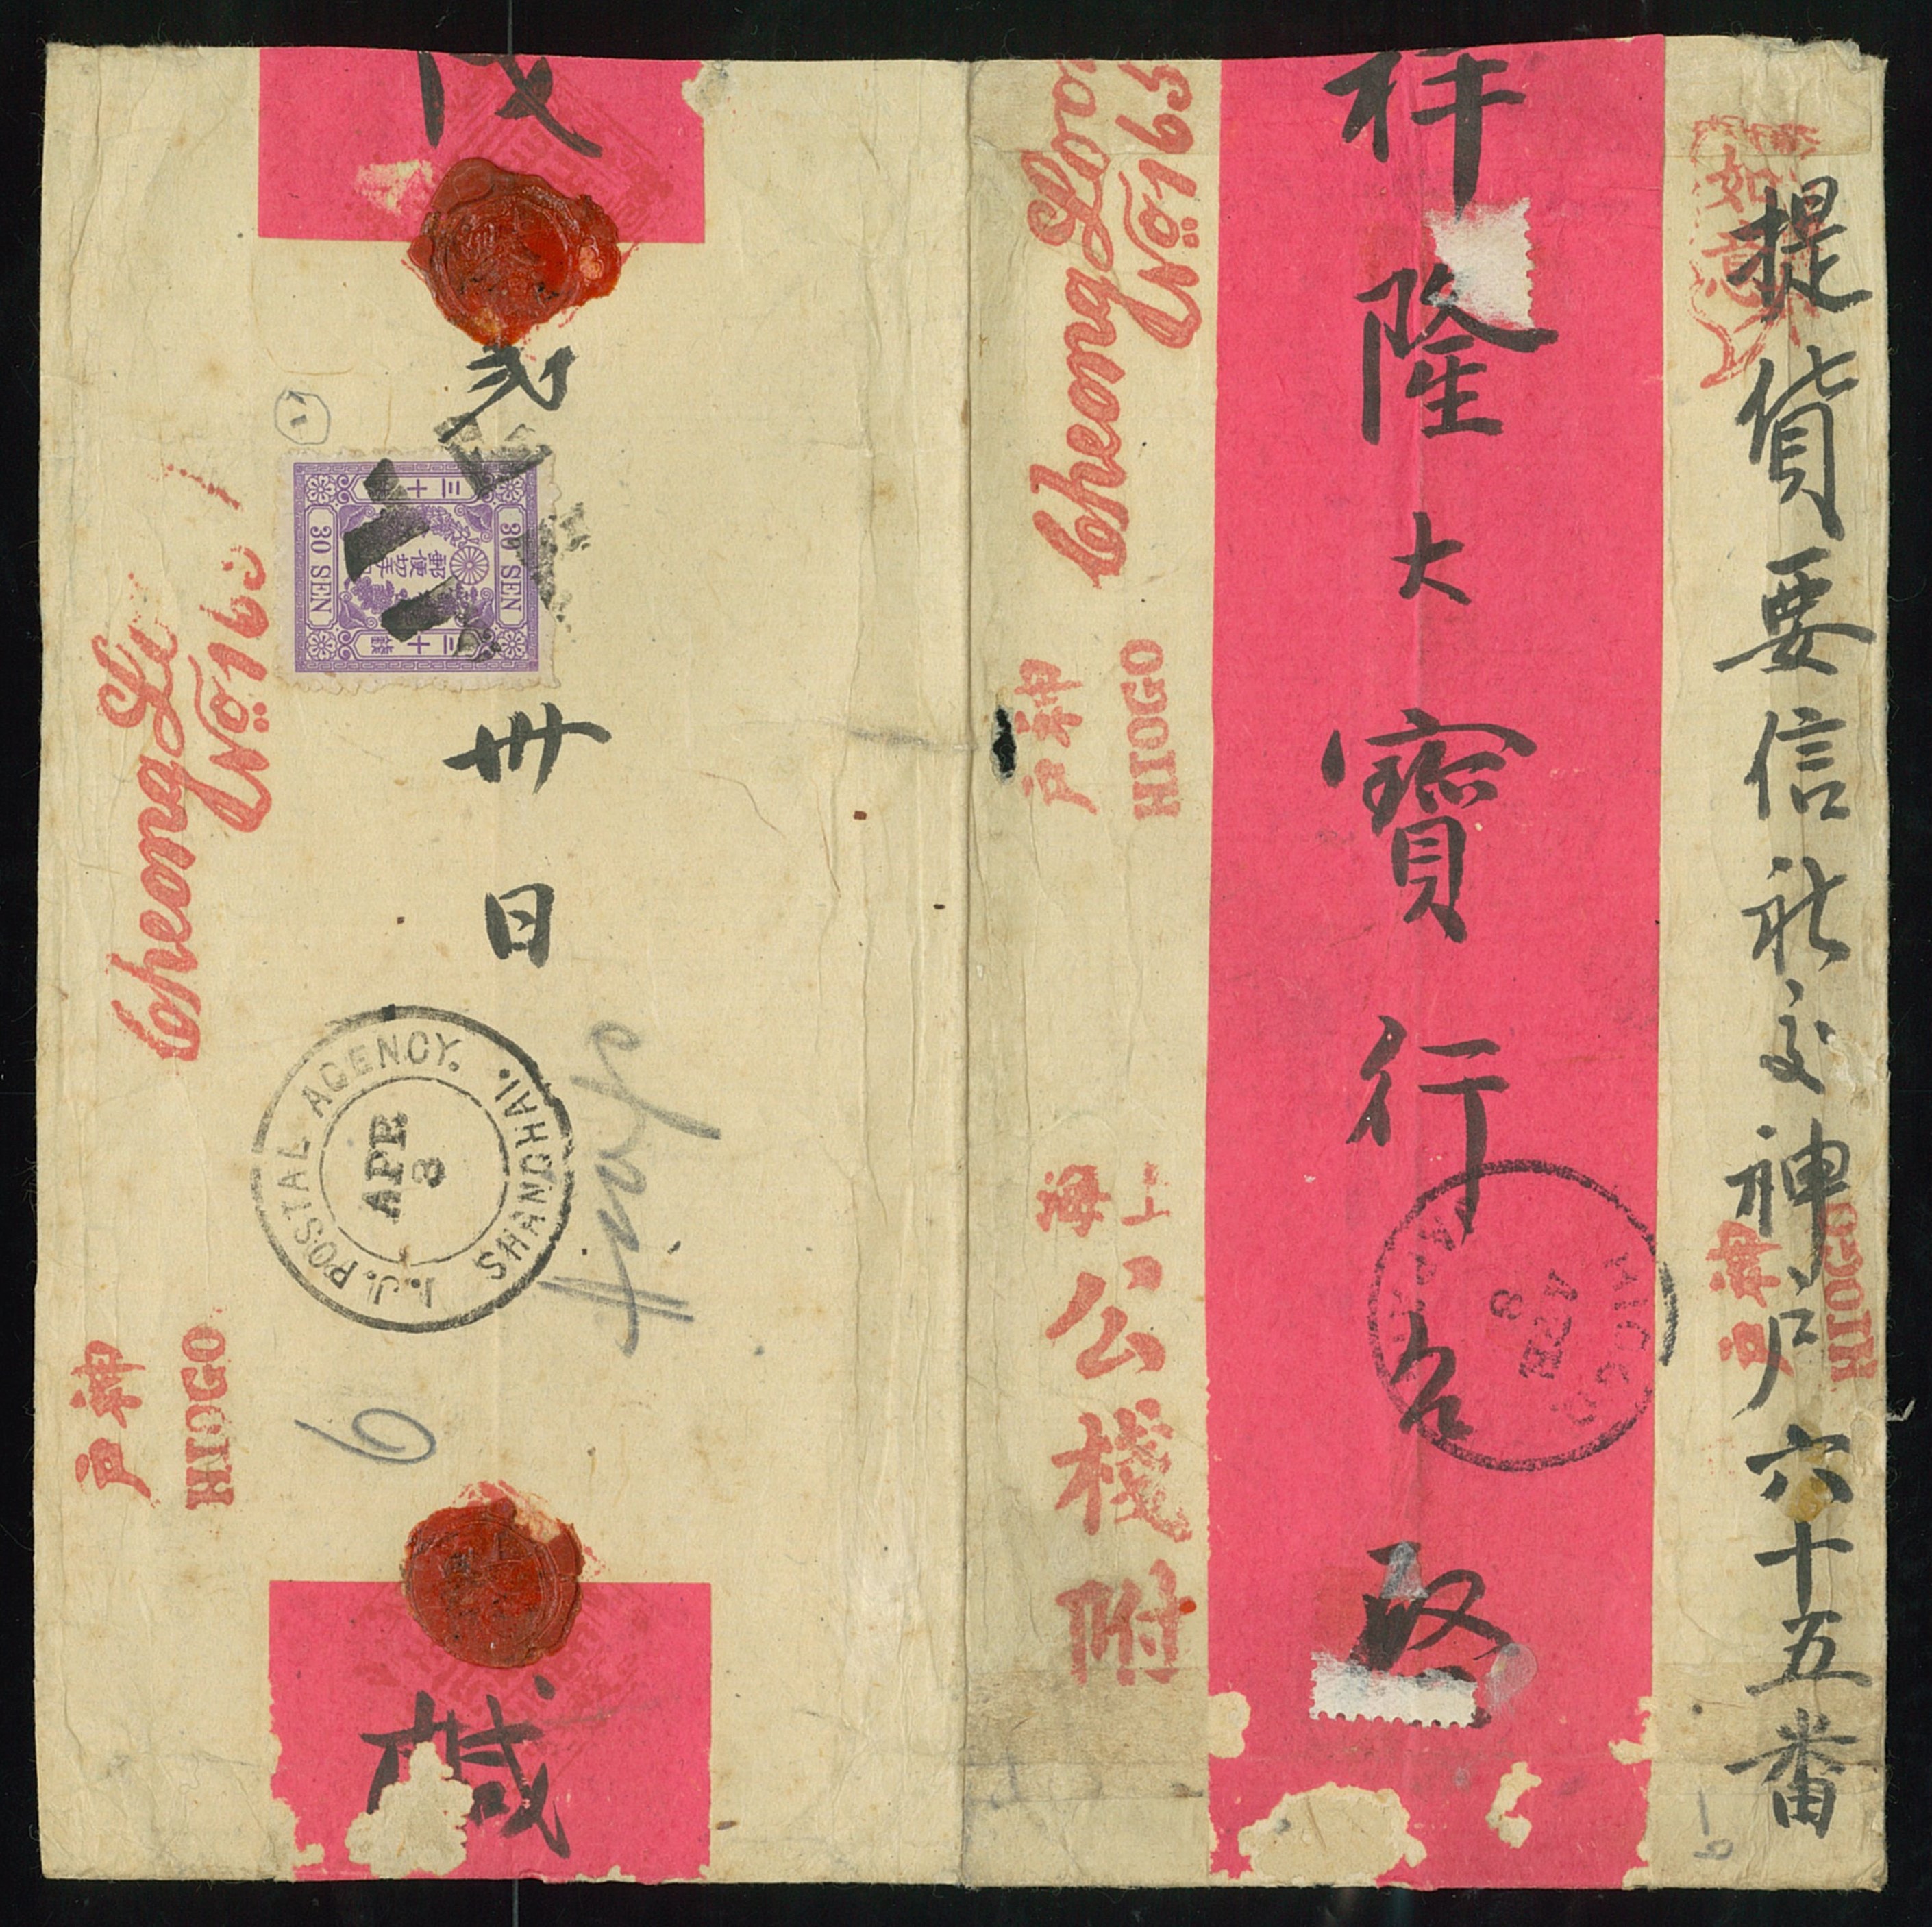 提貨要信祈交神戶六十五番
如意
HIOGO
祥隆大寶行台啟
HIOGO
APR
8
Cheong
No 165
神戶
HIOGO
上海
公棧附
弍
卅日
30 SEN
30 SEN
三十
三十錢
郵便切手
I.J. POSTAL AGENCY.
SHANGHAI.
APR
3
6
緘
Cheong
No 165
神戶
HIOGO